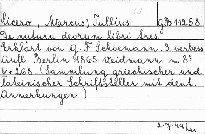 Cicero, Marcus, Tullius
De natura deorum libri tres
Erklärt von G. F. Schoemann. 3. verbess
Aufl. Berlin 1865 Weidmann in 8º
268 (Sammlung griechischer und
lateinischer Schriftsteller mit
Anmerkungen)